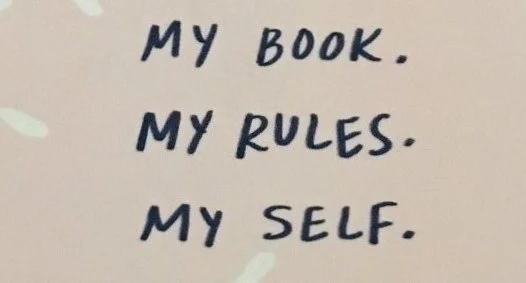 MY BOOK.
MY RULES.
MY SELF.